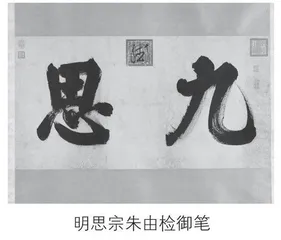 九思
明思宗朱由检御笔